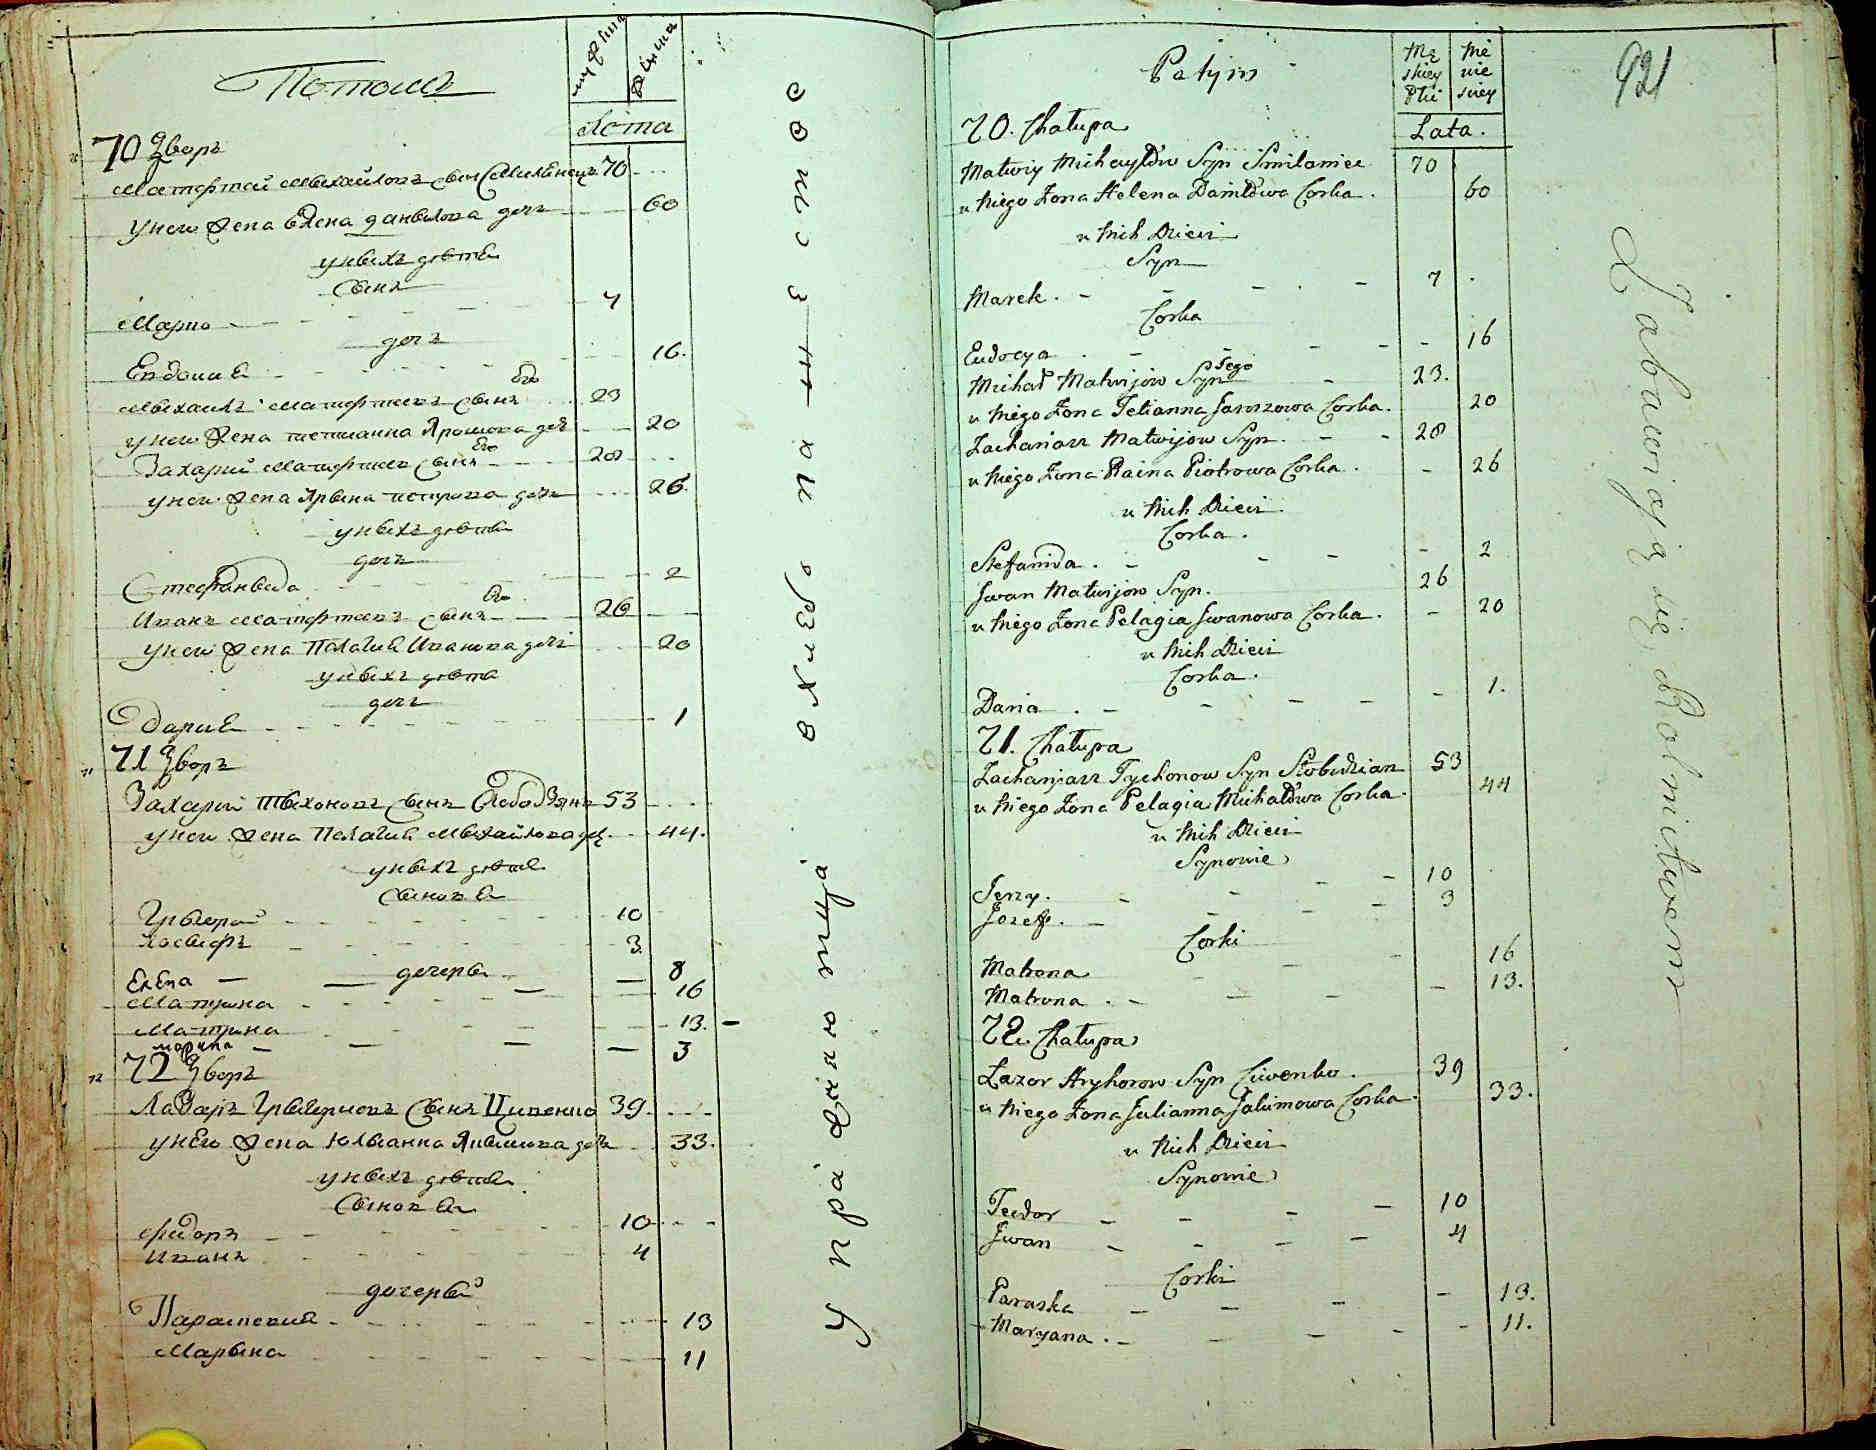 Потомъ
мужска
женска
Лета
70 Дворъ
Матвей Михайловъ сынъ Смиленецъ 70
У него жена Елена Данилова дочь 60
у нихъ дети
сынъ
Марко 7
дочь
Евдокиѣ 16.
Михаилъ Матвѣевъ сынъ его 23
у него жена Тетианна Ярошова дочь 20
Захарий Матвѣевъ сынъ его 28
у него жена Ирина петрова дочь 26.
у нихъ дети
дочь
Стефанида 2
Иванъ Матвѣевъ сынъ его 26
у него жена Пелагия Иванова дочь 20
у нихъ дети
дочь
Дариѣ 1
71 Дворъ
Захарий Тихоновъ сынъ Слободзянъ 53
у него жена Пелагия Михайлова до: 44.
у нихъ дети
сыновѣ
Григорой 10
Иосифъ 3.
дочери
Елена 8
Матрина 16
Матрина 13.
Марина 3
72 Дворъ
Лазаръ Григориевъ сынъ Цивенко 39.
у него жена Юлианна Якимова дочь 33.
у нихъ дети
сыновѣ
Фидоръ 10
Иванъ 4
дочерѣй
Параскивиѣ 13
Марина 11
в хлебопашестве
упражняютца
Patym
Mę
skiey
Płci
Że
nie
skiey
Lata.
921
70. Chałupa
Matwiy Michayłów Syn Smilaniec 70
u Niego Żona Helena Daniłowa Corka. 60
u Nich Dzieci
Syn
Marek. 7
Corka
Eudocya. 16
Michał Matwijow Syn Jego 23.
u Niego Żona Tetianna Jaroszowa Corka. 20
Zacharjasz Matwijow Syn. 28
u Niego Żona Raina Piotrowa Corka. 26
u Nich Dzieci
Corka.
Stefanida. 2
Jwan Matwijow Syn. 26
u Niego Żona Pelagia Jwanowa Corka. 20
u Nich Dzieci
Corka.
Daria. 1.
71. Chałupa
Zacharjasz Tychonow Syn Słobodzian 53
u Niego Żona Pelagia Michałowa Corka. 44
u Nich Dzieci
Synowie
Jerzy. 10
Jozef. 3
Corki
Matrona 16
Matrona. 13.
72. Chałupa
Lazor Hryhorow Syn Ciwenko. 39
u Niego Żona Julianna Jakimowa Corka. 33.
u Nich Dzieci
Synowie
Teodor 10
Jwan 4
Corki
Paraska 13.
Maryana. 11.
Zabawiają się Rolnictwem